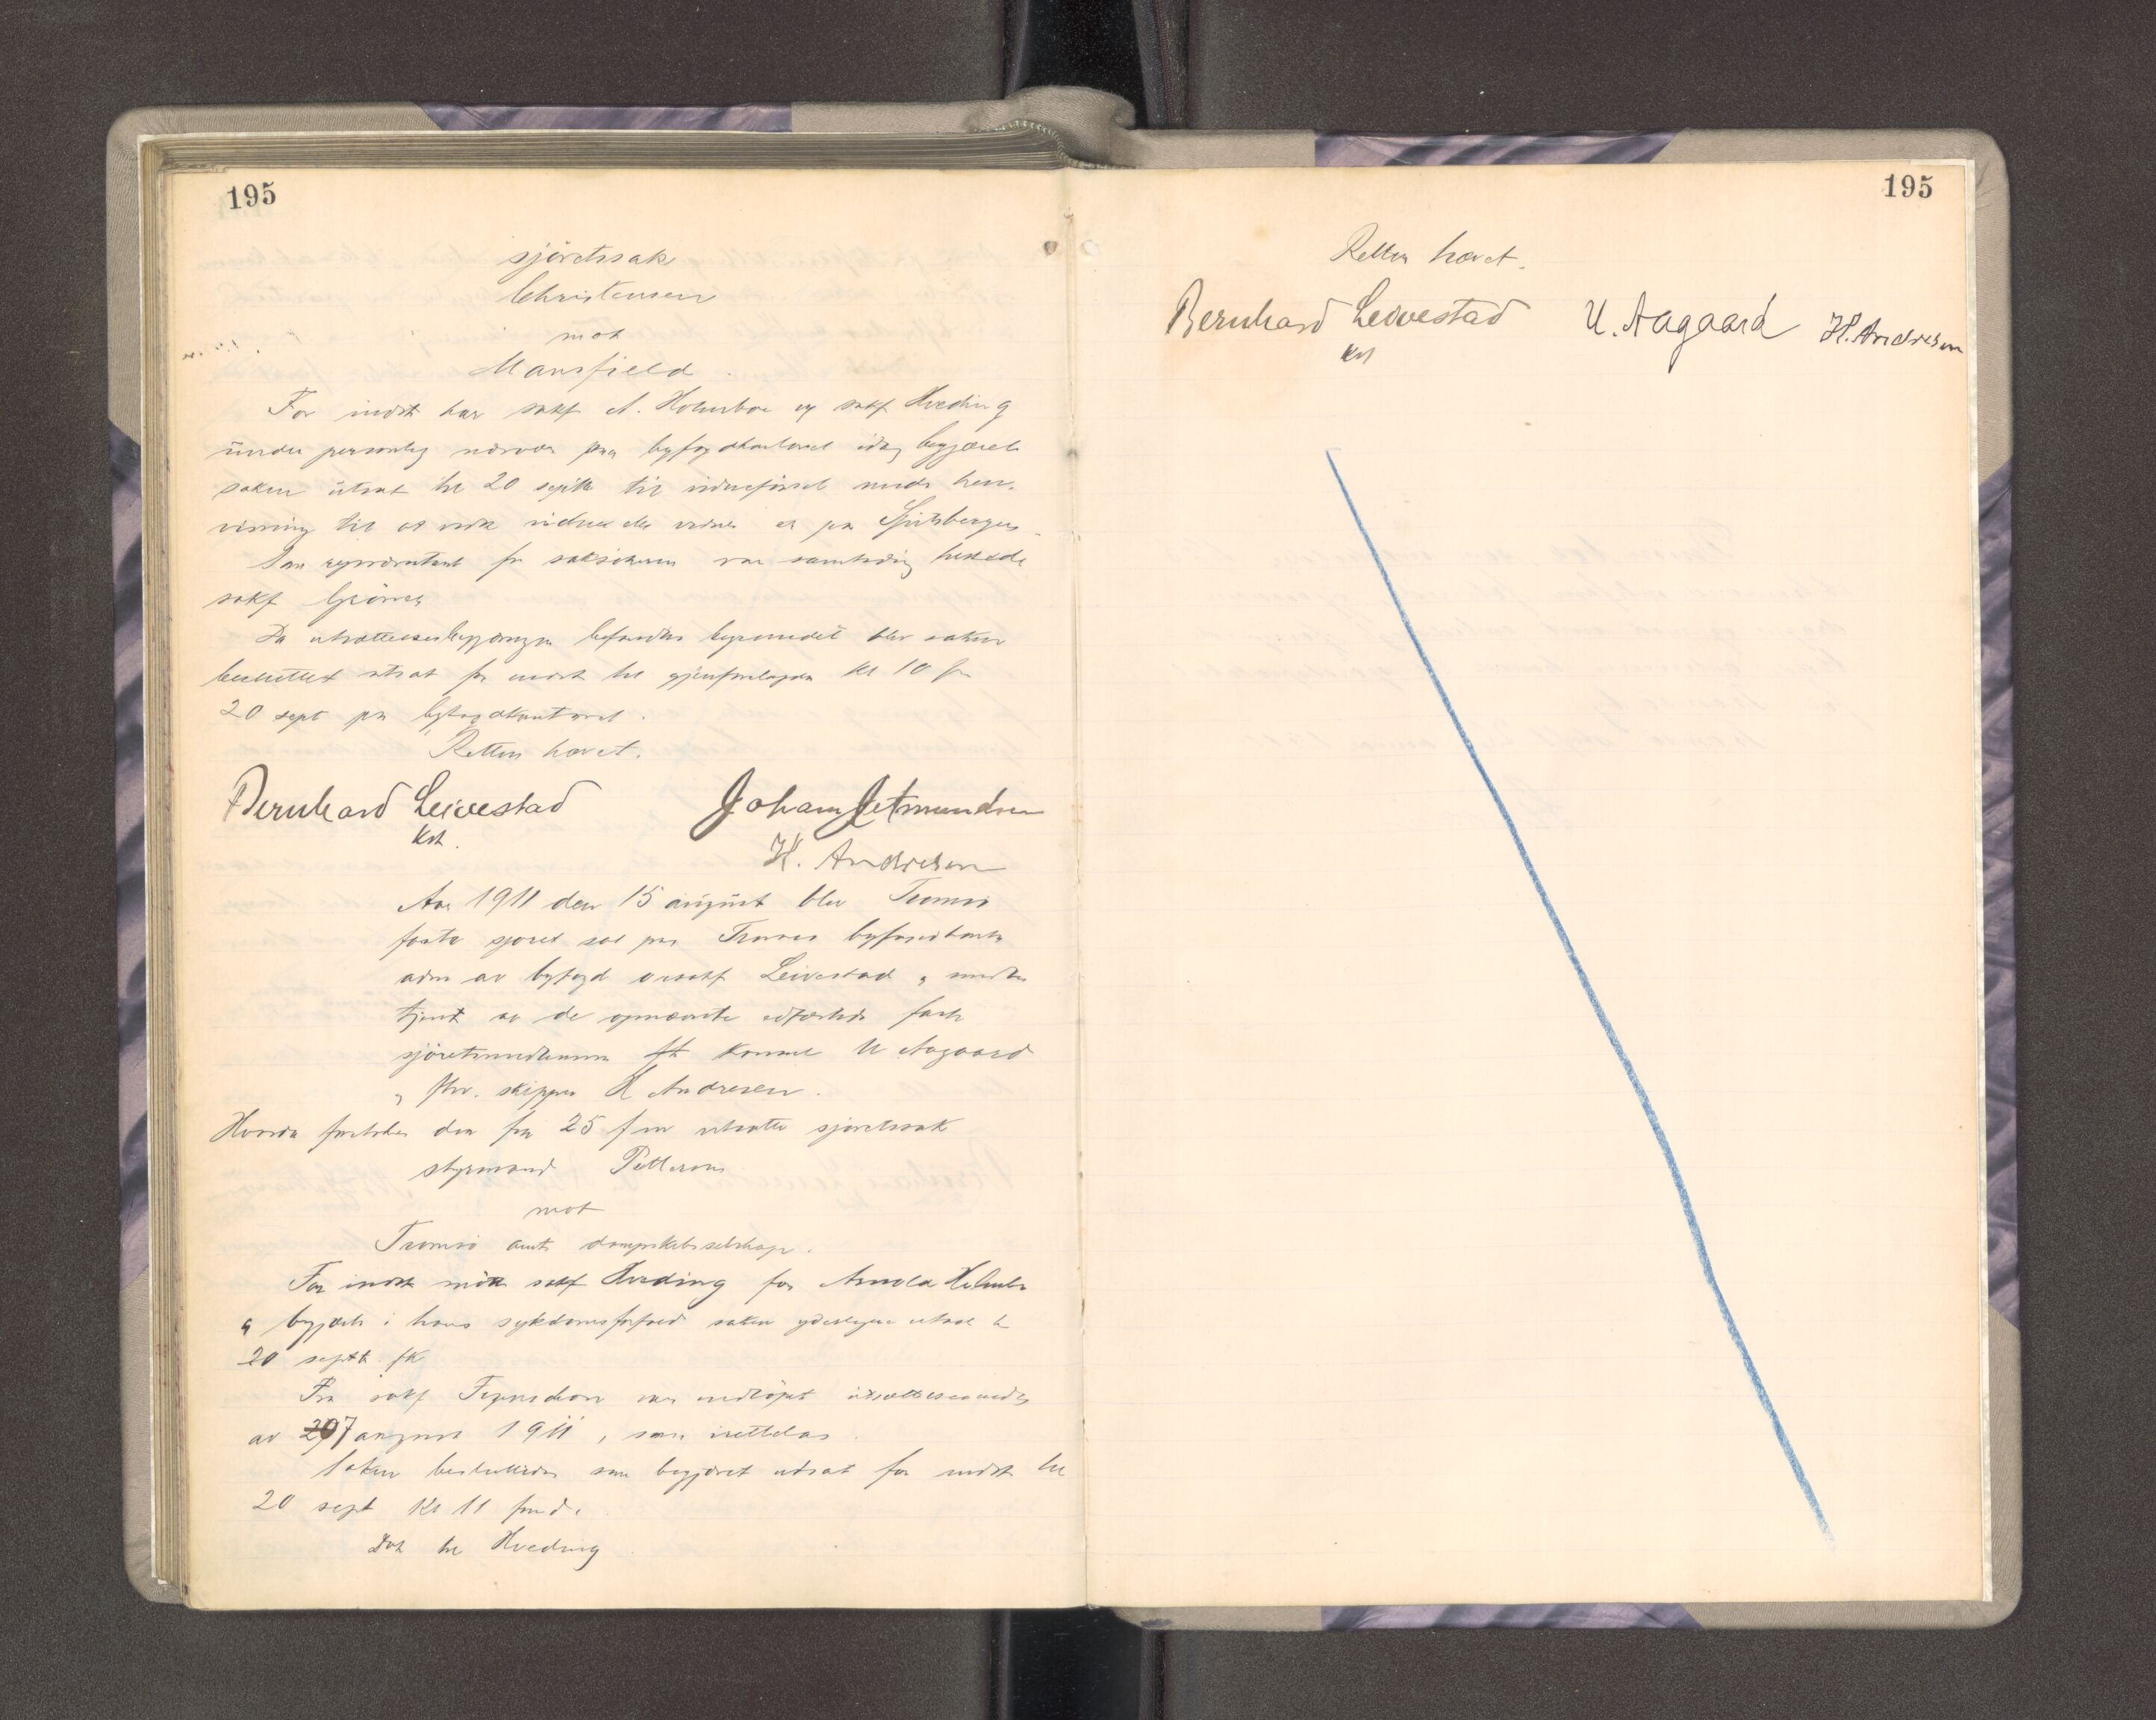 195
sjöretssak
Christensen
mot
Mansfield
For indst har sakf A. Holmboe og sakf Hveding
under personlig nærvær paa byfogdkontoret idag begjæret
saken utsat til 20 septbr til vidneførsel under hen-
visning til at
vidner er paa Spitsbergen
Som repræsentant for saksökeren var samtidig tilstede
sakf Grönnes
Da utsættelsesbegjæringen befandtes begrundet blev saken
besluttet utsat for indst til gjenforetagen kl 10 fm
20 sept paa byfogdkontoret.
Retten hævet.
Bernhard Leivestad
kst.
Johan Jetmundsen
H. Andresen
Aar 1911 den 15 august blev Tromsö
faste sjöret sat paa Tromsö byfogdkontor
adm av byfogd Leivestad og meddom
tjent av de opnævnte edfæstede faste
sjöretsmedlemmer U Aagaard
og skipper H Andresen.
Hvorda foretokes den fra 25 f m utsatte sjöretssak
styrmand Petterson
mot
Tromsö amts dampskibsselskap.
For indst mötte sakf Hveding for Arnold Holmboe
og begjærte i hans sykdomsforfald saken yderligere utsat til
20 septbr fk
Fra sakf var indlöpet
av 7 august 1911, som irettelas.
Saken besluttedes som begjæret utsat for indst til
20 sept kl 11 form.
Dok til Hveding
195
Retten hævet.
Bernhard Leivestad
kst
U. Aagaard
H. Andresen